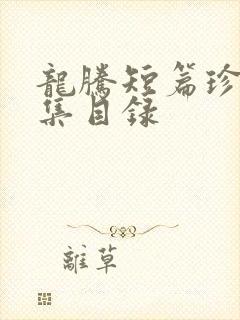 龍騰短篇珍
集目錄
離草